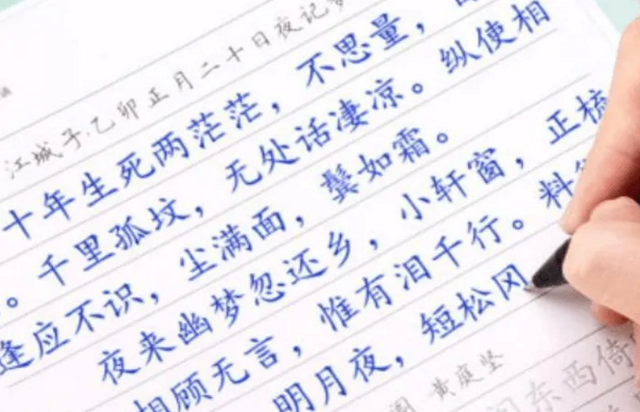 江城子·乙卯正月二十日夜记梦
十年生死两茫茫，不思量，
。千里孤坟，无处话凄凉。纵使相
逢应不识，尘满面，鬓如霜。
夜来幽梦忽还乡，小轩窗，正梳
相顾无言，惟有泪千行。料
明月夜，短松冈
黄庭坚
东西倚